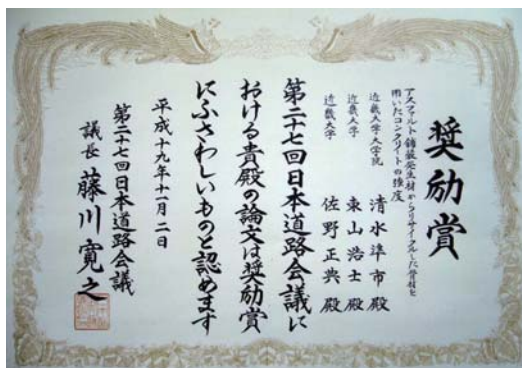 奨励賞
アスファルト舗装発生材からリサイクルした骨材を
用いたコンクリートの強度
近畿大学大学院 清水準市殿
近畿大学 東山浩士殿
近畿大学 佐野正典殿
第二十七回日本道路会議に
おける貴殿の論文は奨励賞
にふさわしいものと認めます
平成十九年十一月二日
第二十七回日本道路会議
議長 藤川寛之